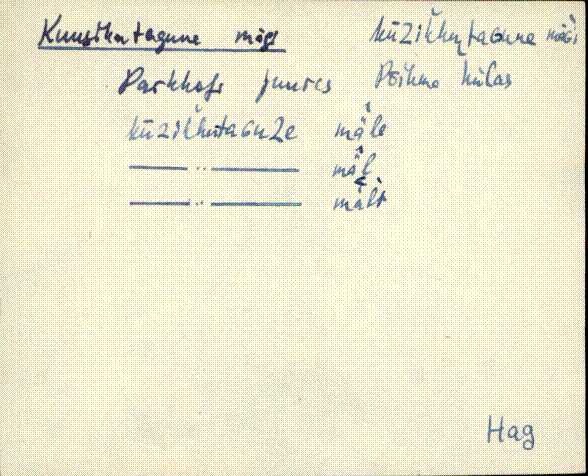 Kuusikutagune mägi kūziˇkutagune mägi
Parkhofi juures Põihme külas
kūzikutaguze mäle
— „ — mäl
— „ — mält
Hag